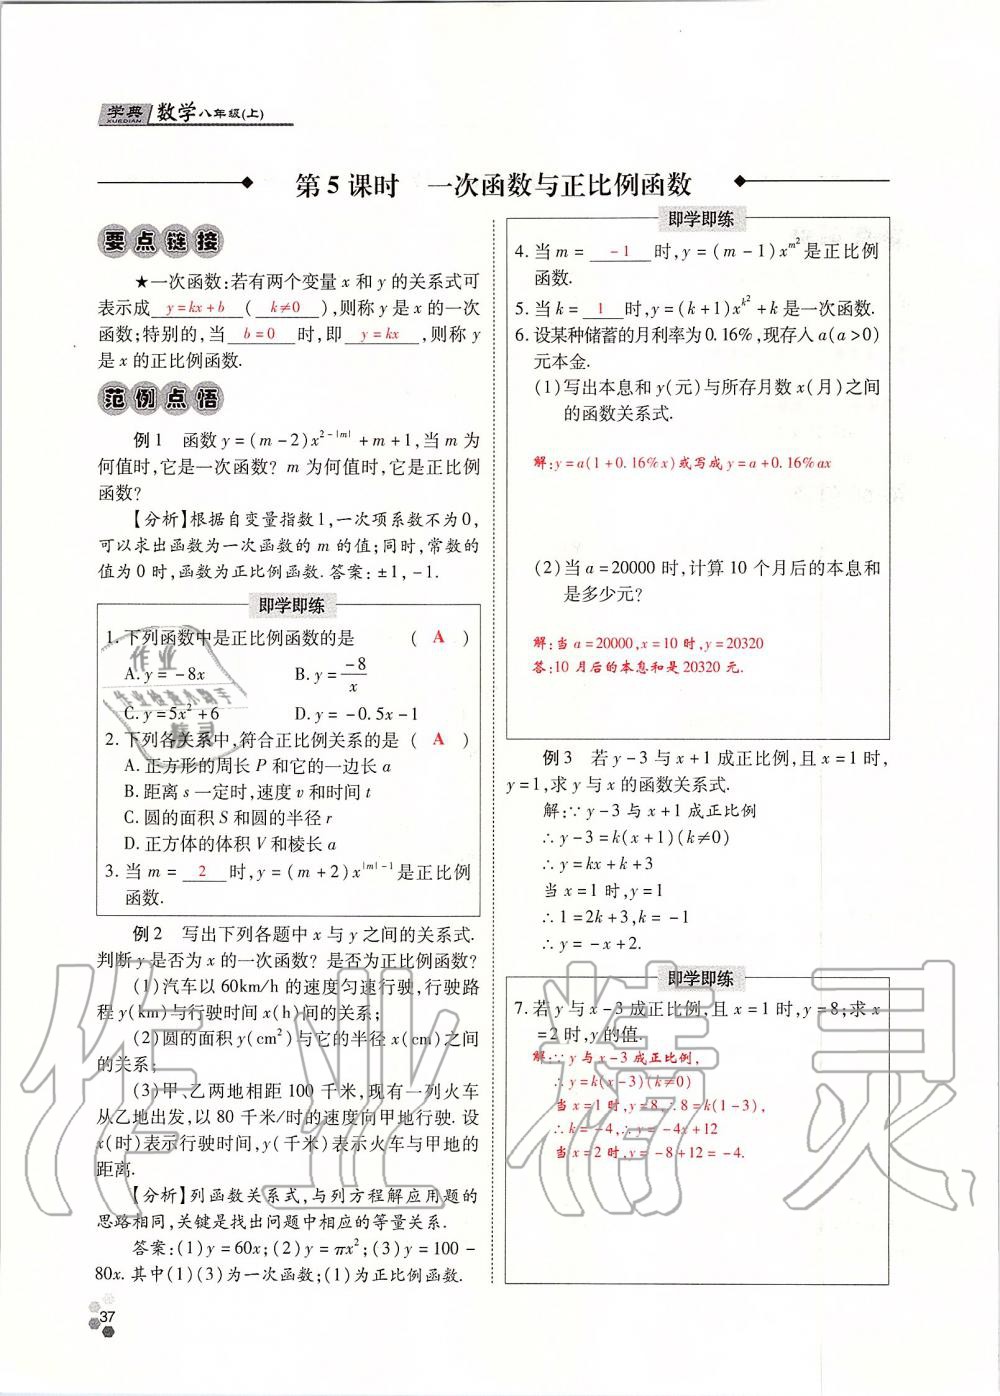 学典 数学八年级(上)
XUEDIAN
第5课时 一次函数与正比例函数
要点链接
★一次函数:若有两个变量 x 和 y 的关系式可
表示成 y=kx+b ( k≠0 ),则称 y 是 x 的一次
函数;特别的,当 b=0 时,即 y=kx ,则称 y
是 x 的正比例函数.
范例点悟
例1 函数 y=(m-2)x^{2-|m|}+m+1,当 m 为
何值时,它是一次函数? m 为何值时,它是正比例
函数?
【分析】根据自变量指数1,一次项系数不为0,
可以求出函数为一次函数的 m 的值;同时,常数的
值为0时,函数为正比例函数.答案:±1,-1.
即学即练
1. 下列函数中是正比例函数的是 ( A )
A. y=-8x B. y=\frac{-8}{x}
C. y=5x²+6 D. y=-0.5x-1
2. 下列各关系中,符合正比例关系的是 ( A )
A. 正方形的周长 P 和它的一边长 a
B. 距离 s 一定时,速度 v 和时间 t
C. 圆的面积 S 和圆的半径 r
D. 正方体的体积 V 和棱长 a
3. 当 m= 2 时,y=(m+2)x^{|m|-1}是正比例
函数.
例2 写出下列各题中 x 与 y 之间的关系式.
判断 y 是否为 x 的一次函数? 是否为正比例函数?
(1)汽车以60km/h 的速度匀速行驶,行驶路
程 y(km)与行驶时间 x(h)间的关系;
(2)圆的面积 y(cm²)与它的半径 x(cm)之间
的关系;
(3)甲、乙两地相距100千米,现有一列火车
从乙地出发,以80千米/时的速度向甲地行驶.设
x(时)表示行驶时间,y(千米)表示火车与甲地的
距离.
【分析】列函数关系式,与列方程解应用题的
思路相同,关键是找出问题中相应的等量关系.
答案:(1)y=60x;(2)y=πx²;(3)y=100-
80x.其中(1)(3)为一次函数;(1)为正比例函数.
37
即学即练
4. 当 m= -1 时,y=(m-1)x^{m²}是正比例
函数.
5. 当 k= 1 时,y=(k+1)x^{k²}+k 是一次函数.
6. 设某种储蓄的月利率为0.16%,现存入 a(a>0)
元本金.
(1)写出本息和 y(元)与所存月数 x(月)之间
的函数关系式.
解:y=a(1+0.16%x)或写成 y=a+0.16%ax
(2)当 a=20000 时,计算10个月后的本息和
是多少元?
解:当 a=20000,x=10 时,y=20320
答:10月后的本息和是20320元.
例3 若 y-3 与 x+1 成正比例,且 x=1 时,
y=1,求 y 与 x 的函数关系式.
解:∵y-3 与 x+1 成正比例
∴y-3=k(x+1)(k≠0)
∴y=kx+k+3
当 x=1 时,y=1
∴1=2k+3,k=-1
∴y=-x+2.
即学即练
7. 若 y 与 x-3 成正比例,且 x=1 时,y=8;求 x
=2 时,y 的值.
解:∵y 与 x-3 成正比例,
∴y=k(x-3)(k≠0)
当 x=1 时,y=8,∴8=k(1-3),
∴k=-4,∴y=-4x+12
当 x=2 时,y=-8+12=-4.
作业
作业检查小助手
精灵
作业精灵